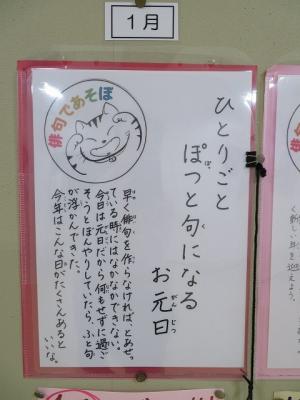 1月
俳句であそぼ
ひとりごと
ぽっと句になる
お元日
がんじつ
早く俳句を作らなければ、とあせっ
ている時にはなかなかできない。
今日は元日だから何もせずに過ご
そうとぼんやりしていたら、ふと句
が浮かんできた。
今年はこんな日がたくさんあると
いいな。